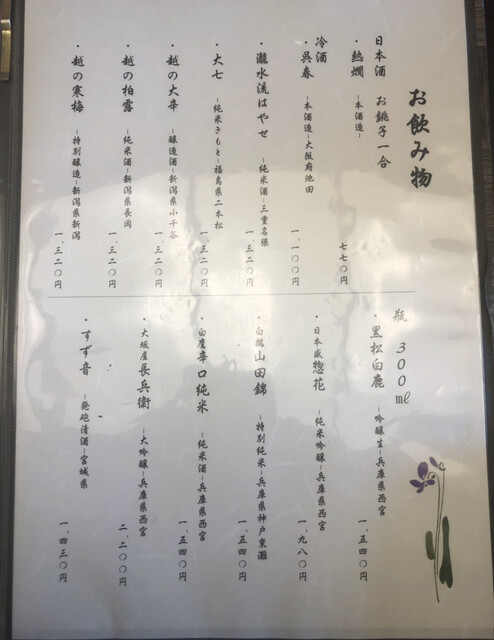 お飲み物
日本酒　お銚子一合
・熱燗　-本酒造-　七七〇円
冷酒
・呉春　-本酒造-大阪府池田　一、一〇〇円
・瀧水流はやせ　-純米酒-三重名張　一、三二〇円
・大七　-純米きもと-福島県二本松　一、三二〇円
・越の大辛　-醸造酒-新潟県小千谷　一、三二〇円
・越の柏露　-純米酒-新潟県長岡　一、三二〇円
・越の寒梅　-特別醸造-新潟県新潟　一、三二〇円
瓶　300㎖
・黒松白鹿　-吟醸生-兵庫県西宮　一、五四〇円
・日本盛惣花　-純米吟醸-兵庫県西宮　一、九八〇円
・白鶴山田錦　-特別純米-兵庫県神戸東灘　一、五四〇円
・白鷹辛口純米　-純米酒-兵庫県西宮　一、五四〇円
・大坂屋長兵衛　-大吟醸-兵庫県西宮　二、二〇〇円
・すず音　-発砲清酒-宮城県　一、四三〇円